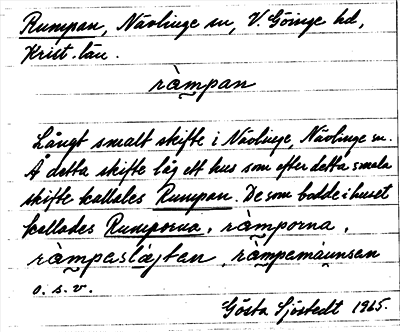 Rumpan, Nävlinge sn, V. Göinge hd,
Krist. län.
ràmpan
Långt smalt skifte i Nävlinge, Nävlinge sn.
Å detta skifte låg ett hus som efter detta smala
skifte kallales Rumpan. De som bodde i huset
kallades Rumporna, ràmporna,
ràmpaslájtan, ràmpamáunsen
o. s. v.
Gösta Sjöstedt 1965.